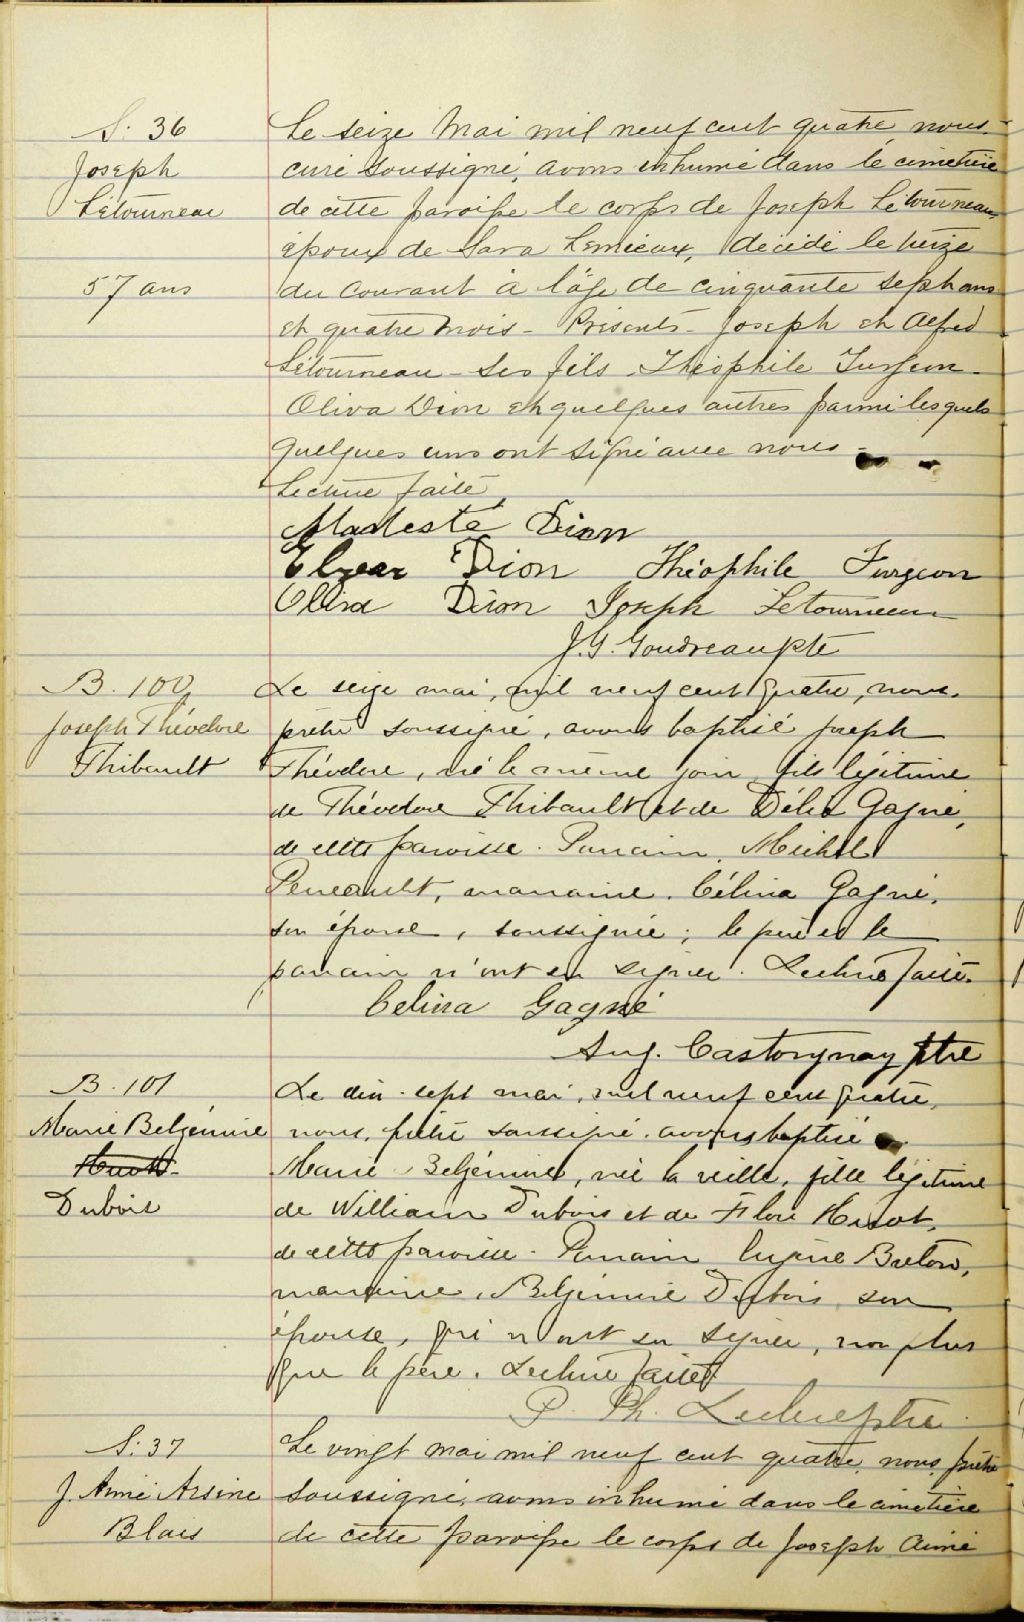 S: 36
Joseph
Létourneau
57 ans
Le seize Mai mil neuf cent quatre nous
curé soussigné, avons inhumé dans le cimetière
de cette paroisse le corps de Joseph Létourneau,
époux de Sara Lemieux, décédé le treize
du courant à l'âge de cinquante sept ans
et quatre mois - Présents - Joseph et Alfred
Létourneau - ses fils - Théophile Turgeon -
Oliva Dion et quelques autres parmi lesquels
quelques uns ont signé avec nous -
Lecture faite
Modeste Dion
Elzear Dion Théophile Turgeon
Oliva Dion Joseph Letourneau
J. G. Goudreau ptre
B. 100
Joseph Théodore
Thibault
Le seize mai, mil neuf cent quatre, nous,
prêtre soussigné, avons baptisé Joseph
Théodore, né le même jour, fils légitime
de Théodore Thibault et de Délia Gagné,
de cette paroisse. Parrain, Michel
Peneault, marraine, Célina Gagné,
son épouse, soussignée; le père et le
parrain n'ont su signer. Lecture faite.
Celina Gagné
Aug. Castonguay ptre
B. 101
Marie Belzémire
Huot
Dubois
Le dix-sept mai, mil neuf cent quatre,
nous, prêtre soussigné, avons baptisé
Marie Belzémire, née la veille, fille légitime
de William Dubois et de Flore Huot,
de cette paroisse. Parrain Eugène Breton,
marraine, Belzémire Dubois, son
épouse, qui n'ont su signer, non plus
que le père. Lecture faite
P. Ph. Leclerc ptre
S: 37
J. Aimé Arsène
Blais
Le vingt mai mil neuf cent quatre, nous, prêtre
soussigné, avons inhumé dans le cimetière
de cette paroisse le corps de Joseph Aimé